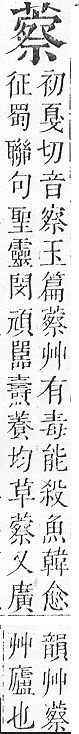 蔡
初戛切音察玉篇蔡艸有毒能殺魚韓愈
征蜀聯句聖靈閔頑嚚燾養均草蔡又廣
韻艸蔡
艸廬也